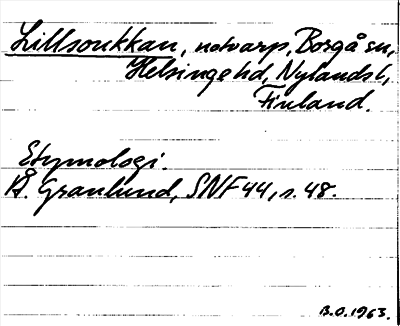 Lillsoukkan, notvarp, Borgå sn,
Helsinge hd, Nylands l,
Finland.
Etymologi.
Å. Granlund, SNF 44, s. 48.
B.O. 1963.